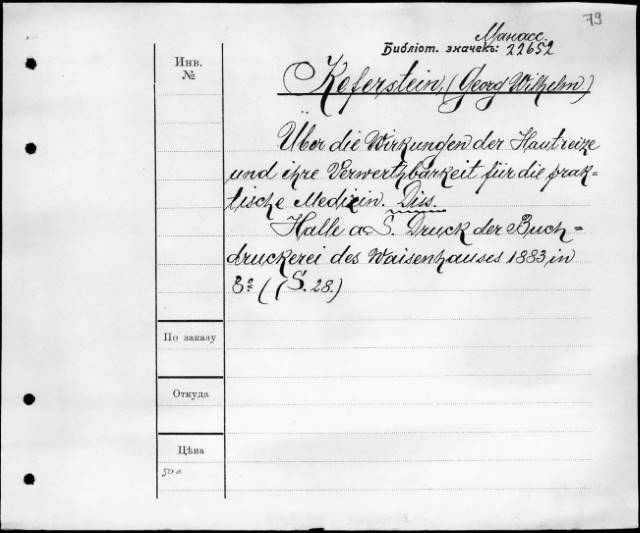 79
Манасс.
Библіот. значекъ: 22652
Инв.
№
Keferstein, (Georg Wilhelm)
Über die Wirkungen der Hautreize
und ihre Verwerthbarkeit für die prak=
tische Medicin. Diss.
Halle a. S. Druck der Buch=
druckerei des Waisenhauses 1883 in
8º ( (S. 28.)
По заказу
Откуда
Цѣна
50 к